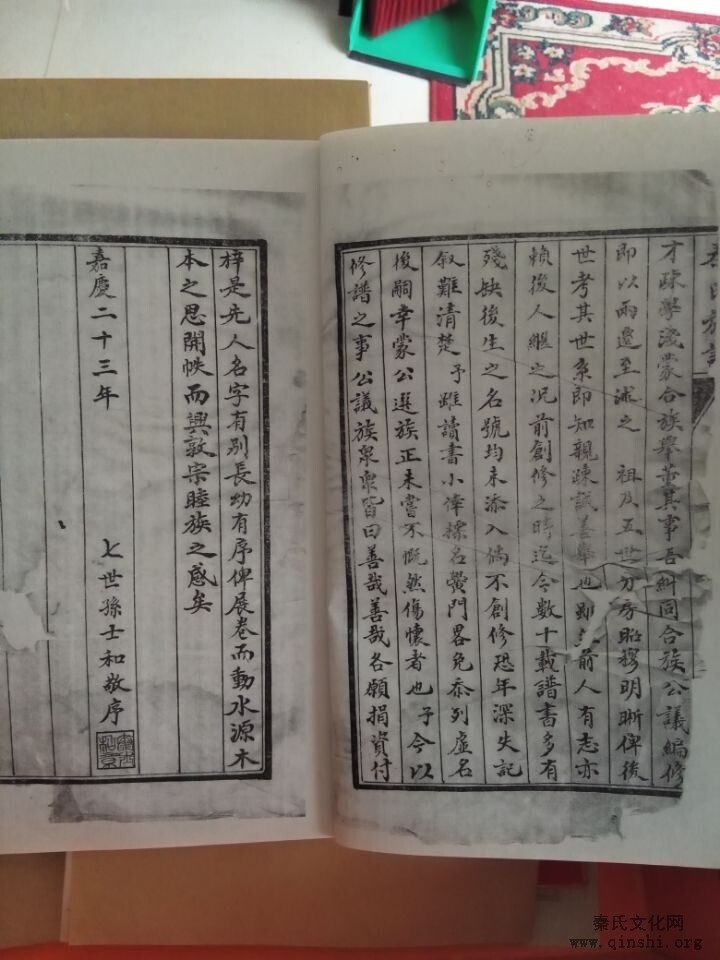 才疎學淺蒙合族舉董其事吾糾同合族公議編修
即以兩邊至述之　祖及五世分房昭穆明晰俾後
世考其世系即知親疎誠善舉也雖前人有志亦
賴後人繼之况前創修之時迄今數十載譜書多有
殘缺後生之名號均未添入倘不創修恐年深失記
叙難清楚予雖讀書小倖採名黌門畧免忝列虛名
後嗣幸蒙公選族正未嘗不慨然傷懷者也予今以
修譜之事公議族衆衆皆曰善哉善哉各願捐資付
梓是先人名字有別長幼有序俾展卷而動水源木
本之思開帙而興敦宗睦族之感矣
嘉慶二十三年
七世孫士和敬序
秦氏文化网
www.qinshi.org